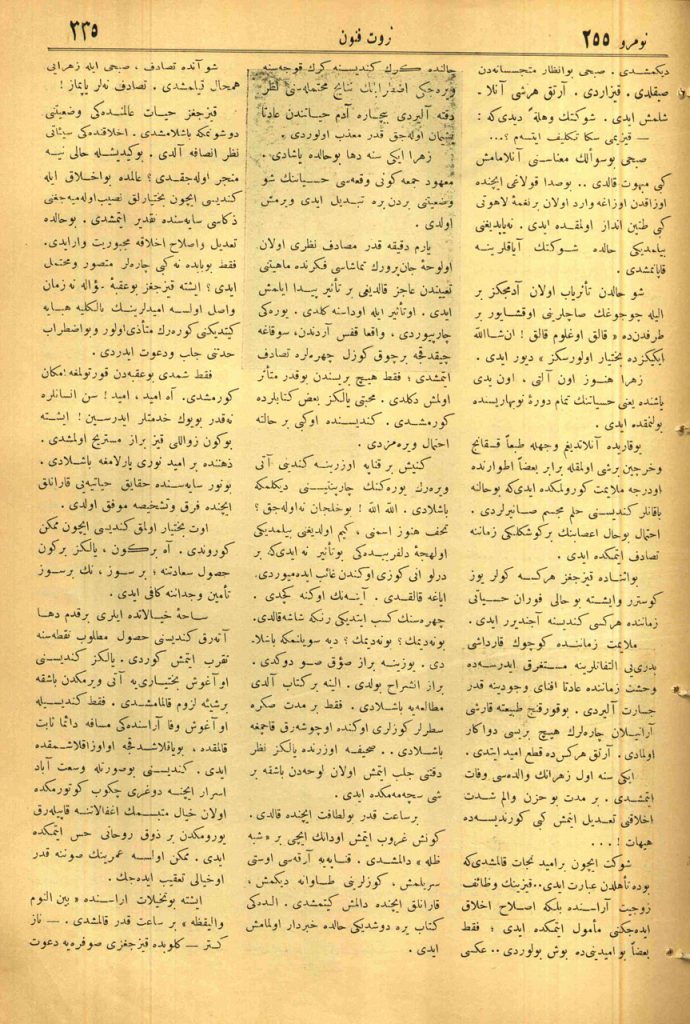 نومرو ٢٥٥
ثروت فنون
٣٣٥
دیكمشدی . صبحی بوانظار متجسسانه‌دن
صیقلدی . قیزاردی . آرتق هرشی آكلا۔
شلمش ایدی . شوكتك وهلةً دیدی‌كه :
— قیزیمی سكا تكلیف ایتسه‌م ؟...
صبحی بوسوألك معناسنی آكلامامش
كبی مبهوت قالدی .. بوصدا قولاغی ایچنده
اوزاقدن اوزاغه وارد اولان برنغمهٔ لاهوتی
كبی طنین انداز اولمقده ایدی . نه‌یاپدیغنی
بیلمدیكی حالده شوكتك آیاقلرینه
قاپانمشدی .
شو حالدن تأثریاب اولان آدمجكز بر
الیله چوجوغك صاچلرینی اوقشایور بر
طرفدن‌ده « قالق اوغلوم قالق ! ان‌شاالله
ایكیكزده بختیار اولورسكز » دیور ایدی .
زهرا هنوز اون آلتی ، اون یدی
یاشنده یعنی حسیاتنك تمام دورهٔ نوبهاریسنده
بولنمقده ایدی .
یوقاریده آكلاتدیغم وجهله طبعاً قسقانج
وخرچین برشی اولمقله برابر بعضاً اطوارنده
اودرجه ملایمت كورولمكده ایدی‌كه بوحالنه
باقانلر كندیسنی حلم مجسم صانیرلردی .
احتمال بوحال اعصابنك بركوشكلكی زماننه
تصادف ایتمكده ایدی .
بواثناده قیزجغز هركسه كولر یوز
كوسترر وایشته بوحالی فوران حسیاتی
زماننده هركسی كندیسنه آجندیرر ایدی .
ملایمت زماننده كوچوك قارداشی
بدری‌یی التفاتلرینه مستغرق ایدرسه‌ده
وحشت زماننده عادتا افنای وجودینه قدر
جسارت آلیردی . بوقورقنج طبیعته قارشی
آرانیلان چاره‌لرك هیچ بریسی دواكار
اولمادی . آرتق هركس‌ده قطع امید ایتدی .
ایكی سنه اول زهرانك والده‌سی وفات
ایتمشدی . بر مدت بو حزن والم شدت
اخلاقنی تعدیل ایتمش كبی كورندیسه‌ده
هیهات ! ...
شوكت ایچون برامید نجات قالمشدی‌كه
بوده تأهلدن عبارت ایدی .. قیزینك وظائف
زوجیت آراسنده بلكه اصلاح اخلاق
ایده‌جكنی مأمول ایتمكده ایدی ؛ فقط
بعضاً بوامیدینی‌ده بوش بولوردی .. عكسی
حالنده كرك كندیسنه كرك قوجه‌سنه
ویره‌جكی اضطرابك نتایج محتمله‌سنی نظر
دقته آلیردی بیچاره آدم حیاتندن عادتا
پشمان اوله‌جق قدر معذب اولوردی .
زهرا ایكی سنه دها بوحالده یاشادی .
معهود جمعه كونی وقعه‌سی حسیاتنك شو
وضعیتنی بردن بره تبدیل ایدی ویرمش
اولدی .
یارم دقیقه قدر مصادف نظری اولان
اولوحهٔ جان‌پرورك تماشاسی فكرنده ماهیتی
تعییندن عاجز قالدیغی بر تأثیر پیدا ایلمش
ایدی . اوتأثیر ایله اوداسنه كلدی . یوره‌كی
چارپیوردی ، واقعا قفس آردندن ، سوقاغه
چیقدقجه برچوق كوزل چهره‌لره تصادف
ایتمشدی ؛ فقط هیچ بریسندن بوقدر متأثر
اولمش دكلدی . محبتی یالكز بعض كتابلرده
كورمشدی . كندیسنده اوكبی بر حالته
احتمال ویره‌مزدی .
كنیش بر قناپه اوزرینه كندینی آتی
ویره‌رك یوره‌كنك چارپنتیسنی دیكلمكه
باشلادی . الله الله ! بوخلجان نه‌اوله‌جق ؟
تحف هنوز اسمنی ، كیم اولدیغنی بیلمدیكی
اولهجهٔ دلفریبده‌كی بوتأثیر نه ایدی‌كه بر
درلو آنی كوزی اوكندن غائب ایده‌میوردی .
ایاغه قالقدی . آینه‌نك اوكنه كچدی .
چهره‌سنك كسب ایتدیكی رنكه شاشه‌قالدی .
بونه‌دیمك ؟ بونه‌دیمك ؟ دیه سویلنمكه باشلا۔
دی . یوزینه براز صوُق صو دوكدی .
براز انشراح بولدی . الینه بركتاب آلدی
مطالعه‌یه باشلادی . فقط بر مدت صكره
سطرلر كوزلری اوكنده اوچوشه‌رق قاچمغه
باشلادی .. صحیفه اوزرنده یالكز نظر
دقتی جلب ایتمش اولان لوحه‌دن باشقه بر
شی سچه‌مه‌مكده ایدی .
برساعت قدر بولطافت ایچنده قالدی .
كونش غروب ایتمش اودانك ایچی بر « شبه
ظله » دالمشدی . قناپه‌یه آرقه‌سی اوستی
سریلمش ، كوزلرینی طاوانه دیكمش ،
قارانلق ایچنده دالمش كیتمشدی . الده‌كی
كتاب یره دوشدیكی حالده خبردار اولمامش
ایدی .
شو آنده تصادف ، صبحی ایله زهرایی
همحال قیلمشدی . تصادف نه‌لر یاپماز !
قیزجغز حیات عالمنده‌كی وضعیتنی
دوشونمكه باشلامشدی . اخلاقنده‌كی سیئاتی
نظر انصافه آلدی . بوكیدیشله حالی نیه
منجر اوله‌جقدی ؟ عالمده بواخلاق ایله
كندیسی ایچون بختیارلق نصیب‌اوله‌میه‌جغنی
ذكاسی سایه‌سنده تقدیر ایتمشدی . بوحالده
تعدیل واصلاح اخلاقه مجبوریت وارایدی .
فقط بوبابده نه كبی چاره‌لر متصور ومحتمل
ایدی ؟ ایشته قیزجغز بوعقبهٔ سؤاله نه زمان
واصل اولسه امیدلرینك بالكلیه هبایه
كیتدیكنی كوره‌رك متأذی‌اولور وبواضطراب
حدتنی جلب ودعوت ایدردی .
فقط شمدی بوعقبه‌دن قورتولمغه امكان
كورمشدی . آه امید ، امید ! سن انسانلره
نه‌قدر بویوك خدمتلر ایدرسین ! ایشته
بوكون زواللی قیز براز مستریح اولمشدی .
ذهننده بر امید نوری پارلامغه باشلادی .
بونور سایه‌سنده حقایق حیاتیه‌یی قارانلق
ایچنده فرق وتشخیصه موفق اولدی .
اوت بختیار اولمق كندیسی ایچون ممكن
كوروندی . آه بركون ، یالكز بركون
حصول سعادتنه ؛ بر سوز ، تك برسوز
تأمین وجداننه كافی ایدی .
ساحهٔ خیالاتده ایلری برقدم دها
آته‌رق كندیسنی حصول مطلوب نقطه‌سنه
تقرب ایتمش كوردی . یالكز كندیسنی
اوآغوش بختیاری‌یه آتی ویرمكدن باشقه
برشیئه لزوم قالمامشدی . فقط كندیسیله
اوآغوش وفا آراسنده‌كی مسافه دائما ثابت
قالمقده ، یاقلاشدقجه اوزاقلاشمقده
ایدی . كندیسنی بوصورتله وسعت آباد
اسرار ایچنه دوغری چكوب كوتورمكده
اولان خیال متبسمك اغفالاتنه قاپیله‌رق
یورومكدن بر ذوق روحانی حس ایتمكده
ایدی . ممكن اولسه عمرینك صوكنه قدر
اوخیالی تعقیب ایده‌جك .
ایشته بوتخیلات آراسنده « بین النوم
والیقظه » بر ساعت قدر قالمشدی . — ناز
كتر — كلوبده قیزجغزی صوفره‌یه دعوت